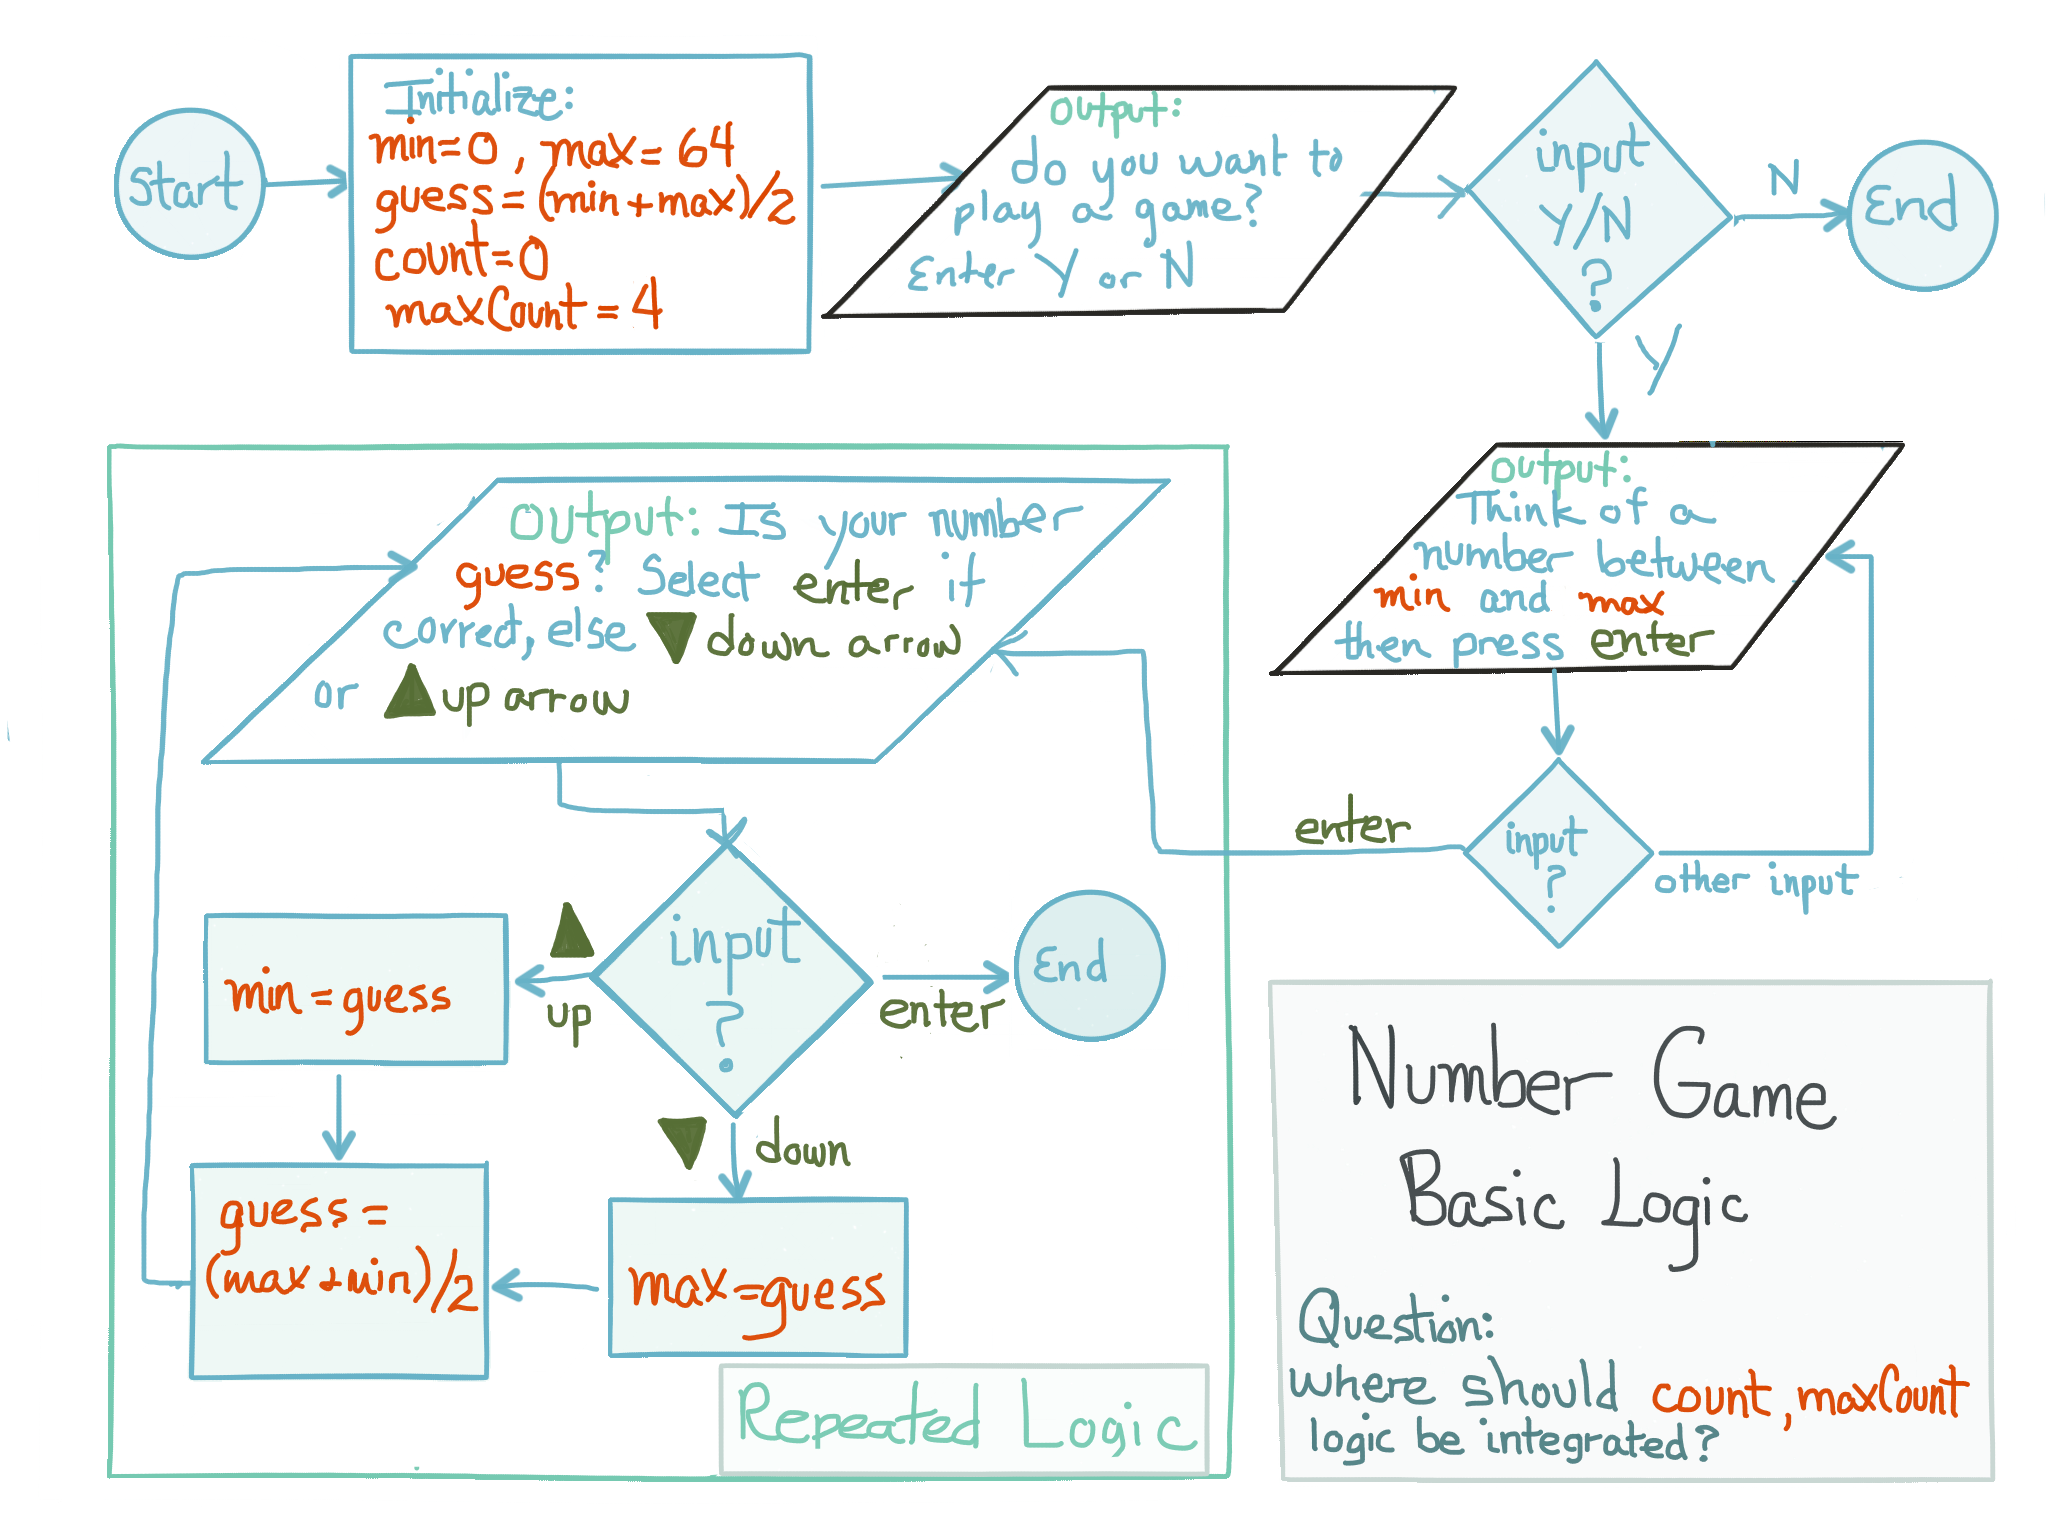 Start
Initialize:
min=0, max=64
guess=(min+max)/2
count=0
maxCount=4
output:
do you want to
play a game?
Enter Y or N
input
Y/N
?
N
End
Y
output:
Think of a
number between
min and max
then press enter
input
?
other input
enter
output: Is your number
guess? Select enter if
correct, else ▼ down arrow
or ▲ up arrow
input
?
▲
up
enter
End
▼ down
min=guess
max=guess
guess=
(max+min)/2
Repeated Logic
Number Game
Basic Logic
Question:
where should count, maxCount
logic be integrated?